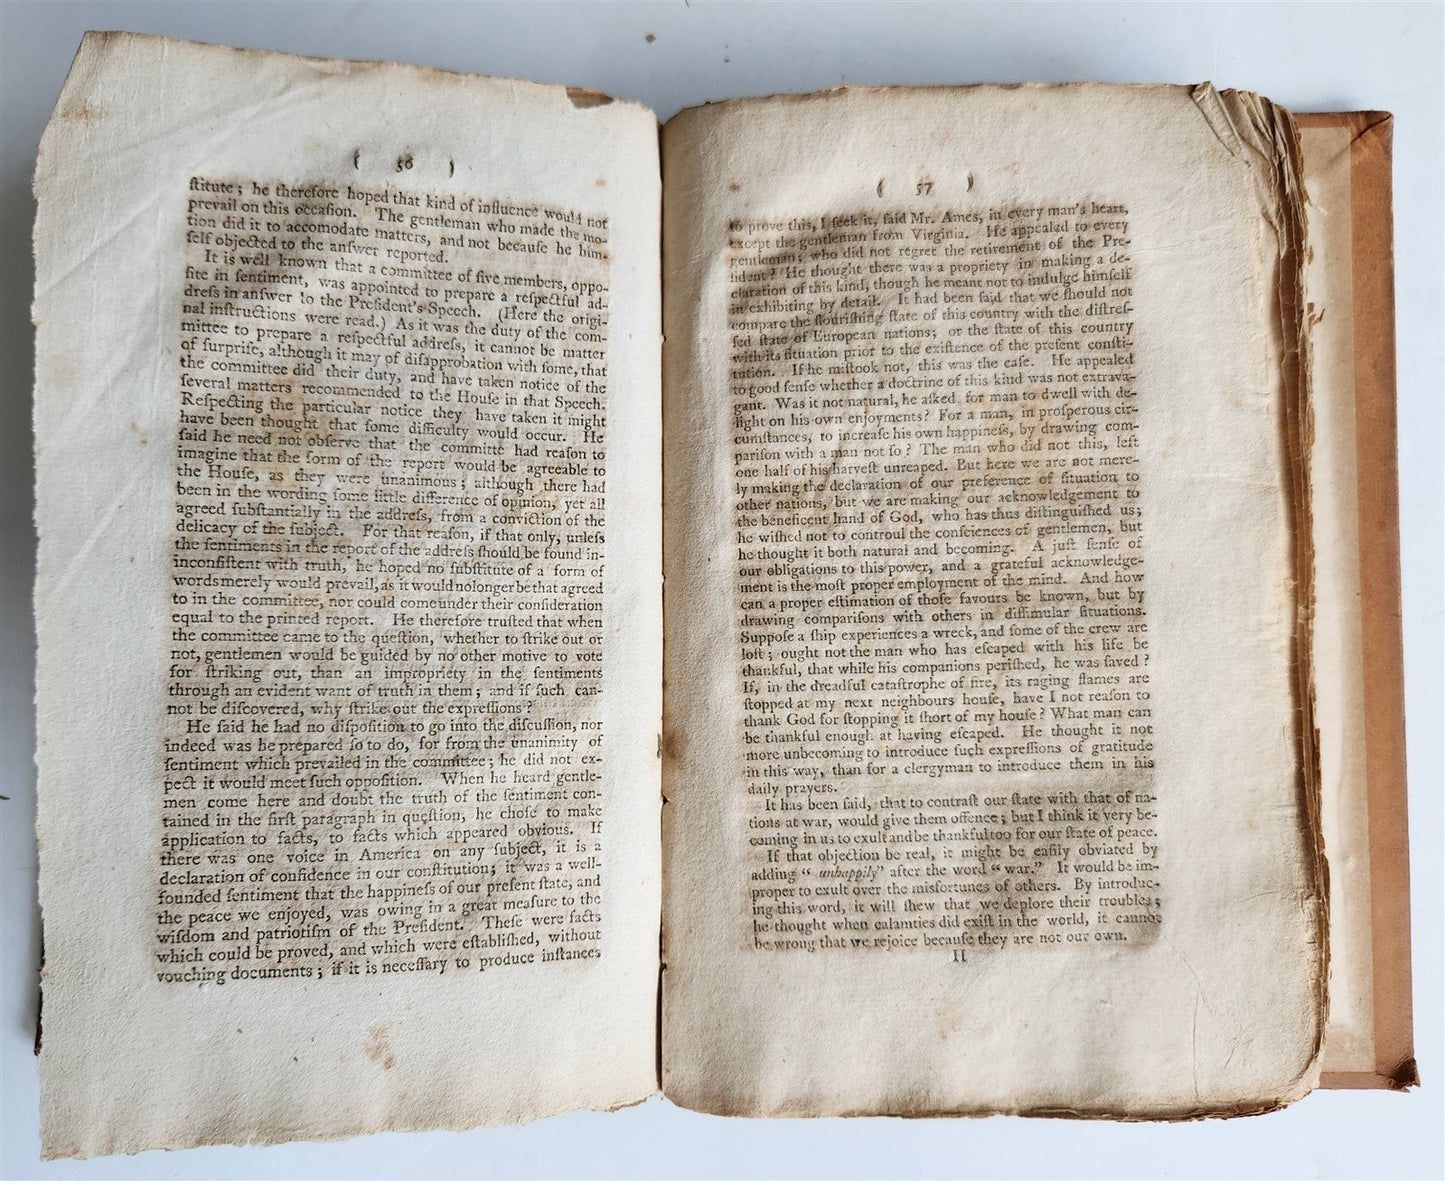 ( 56 )
ſtitute; he therefore hoped that kind of influence would not
prevail on this occaſion. The gentleman who made the mo-
tion did it to accomodate matters, and not becauſe he him-
ſelf objected to the anſwer reported.
It is well known that a committee of five members, oppo-
ſite in ſentiment, was appointed to prepare a reſpectful ad-
dreſs in anſwer to the Preſident's Speech. (Here the origi-
nal inſtructions were read.) As it was the duty of the com-
mittee to prepare a reſpectful addreſs, it cannot be matter
of ſurpriſe, although it may of diſapprobation with ſome, that
the committee did their duty, and have taken notice of the
ſeveral matters recommended to the Houſe in that Speech.
Reſpecting the particular notice they have taken it might
have been thought that ſome difficulty would occur. He
ſaid he need not obſerve that the committe had reaſon to
imagine that the form of the report would be agreeable to
the Houſe, as they were unanimous; although there had
been in the wording ſome little difference of opinion, yet all
agreed ſubſtantially in the addreſs, from a conviction of the
delicacy of the ſubject. For that reaſon, if that only, unleſs
the ſentiments in the report of the addreſs ſhould be found in-
inconſiſtent with truth, he hoped no ſubſtitute of a form of
words merely would prevail, as it would no longer be that agreed
to in the committee, nor could come under their conſideration
equal to the printed report. He therefore truſted that when
the committee came to the queſtion, whether to ſtrike out or
not, gentlemen would be guided by no other motive to vote
for ſtriking out, than an impropriety in the ſentiments
through an evident want of truth in them; and if ſuch can-
not be diſcovered, why ſtrike out the expreſſions?
He ſaid he had no diſpoſition to go into the diſcuſſion, nor
indeed was he prepared ſo to do, for from the unanimity of
ſentiment which prevailed in the committee; he did not ex-
pect it would meet ſuch oppoſition. When he heard gentle-
men come here and doubt the truth of the ſentiment con-
tained in the firſt paragraph in queſtion, he choſe to make
application to facts, to facts which appeared obvious. If
there was one voice in America on any ſubject, it is a
declaration of confidence in our conſtitution; it was a well-
founded ſentiment that the happineſs of our preſent ſtate, and
the peace we enjoyed, was owing in a great meaſure to the
wiſdom and patriotiſm of the Preſident. Theſe were facts
which could be proved, and which were eſtabliſhed, without
vouching documents; if it is neceſſary to produce inſtances
( 57 )
to prove this, I ſeek it, ſaid Mr. Ames, in every man's heart,
except the gentleman from Virginia. He appealed to every
gentleman; who did not regret the retirement of the Pre-
ſident? He thought there was a propriety in making a de-
claration of this kind, though he meant not to indulge himſelf
in exhibiting by detail. It had been ſaid that we ſhould not
compare the flouriſhing ſtate of this country with the diſtreſ-
ſed ſtate of European nations; or the ſtate of this country
with its ſituation prior to the exiſtence of the preſent conſti-
tution. If he miſtook not, this was the caſe. He appealed
to good ſenſe whether a doctrine of this kind was not extrava-
gant. Was it not natural, he aſked, for man to dwell with de-
light on his own enjoyments? For a man, in proſperous cir-
cumſtances, to increaſe his own happineſs, by drawing com-
pariſon with a man not ſo? The man who did not this, left
one half of his harveſt unreaped. But here we are not mere-
ly making the declaration of our preference of ſituation to
other nations, but we are making our acknowledgement to
the beneficent hand of God, who has thus diſtinguiſhed us;
he wiſhed not to controul the conſciences of gentlemen, but
he thought it both natural and becoming. A juſt ſenſe of
our obligations to this power, and a grateful acknowledge-
ment is the moſt proper employment of the mind. And how
can a proper eſtimation of thoſe favours be known, but by
drawing compariſons with others in diſſimular ſituations.
Suppoſe a ſhip experiences a wreck, and ſome of the crew are
loſt; ought not the man who has eſcaped with his life be
thankful, that while his companions periſhed, he was ſaved?
If, in the dreadful cataſtrophe of fire, its raging flames are
ſtopped at my next neighbours houſe, have I not reaſon to
thank God for ſtopping it ſhort of my houſe? What man can
be thankful enough at having eſcaped. He thought it not
more unbecoming to introduce ſuch expreſſions of gratitude
in this way, than for a clergyman to introduce them in his
daily prayers.
It has been ſaid, that to contraſt our ſtate with that of na-
tions at war, would give them offence; but I think it very be-
coming in us to exult and be thankful too for our ſtate of peace.
If that objection be real, it might be eaſily obviated by
adding “ unhappily” after the word “ war.” It would be im-
proper to exult over the misfortunes of others. By introduc-
ing this word, it will ſhew that we deplore their troubles;
he thought when calamties did exiſt in the world, it cannot
be wrong that we rejoice becauſe they are not our own.
II